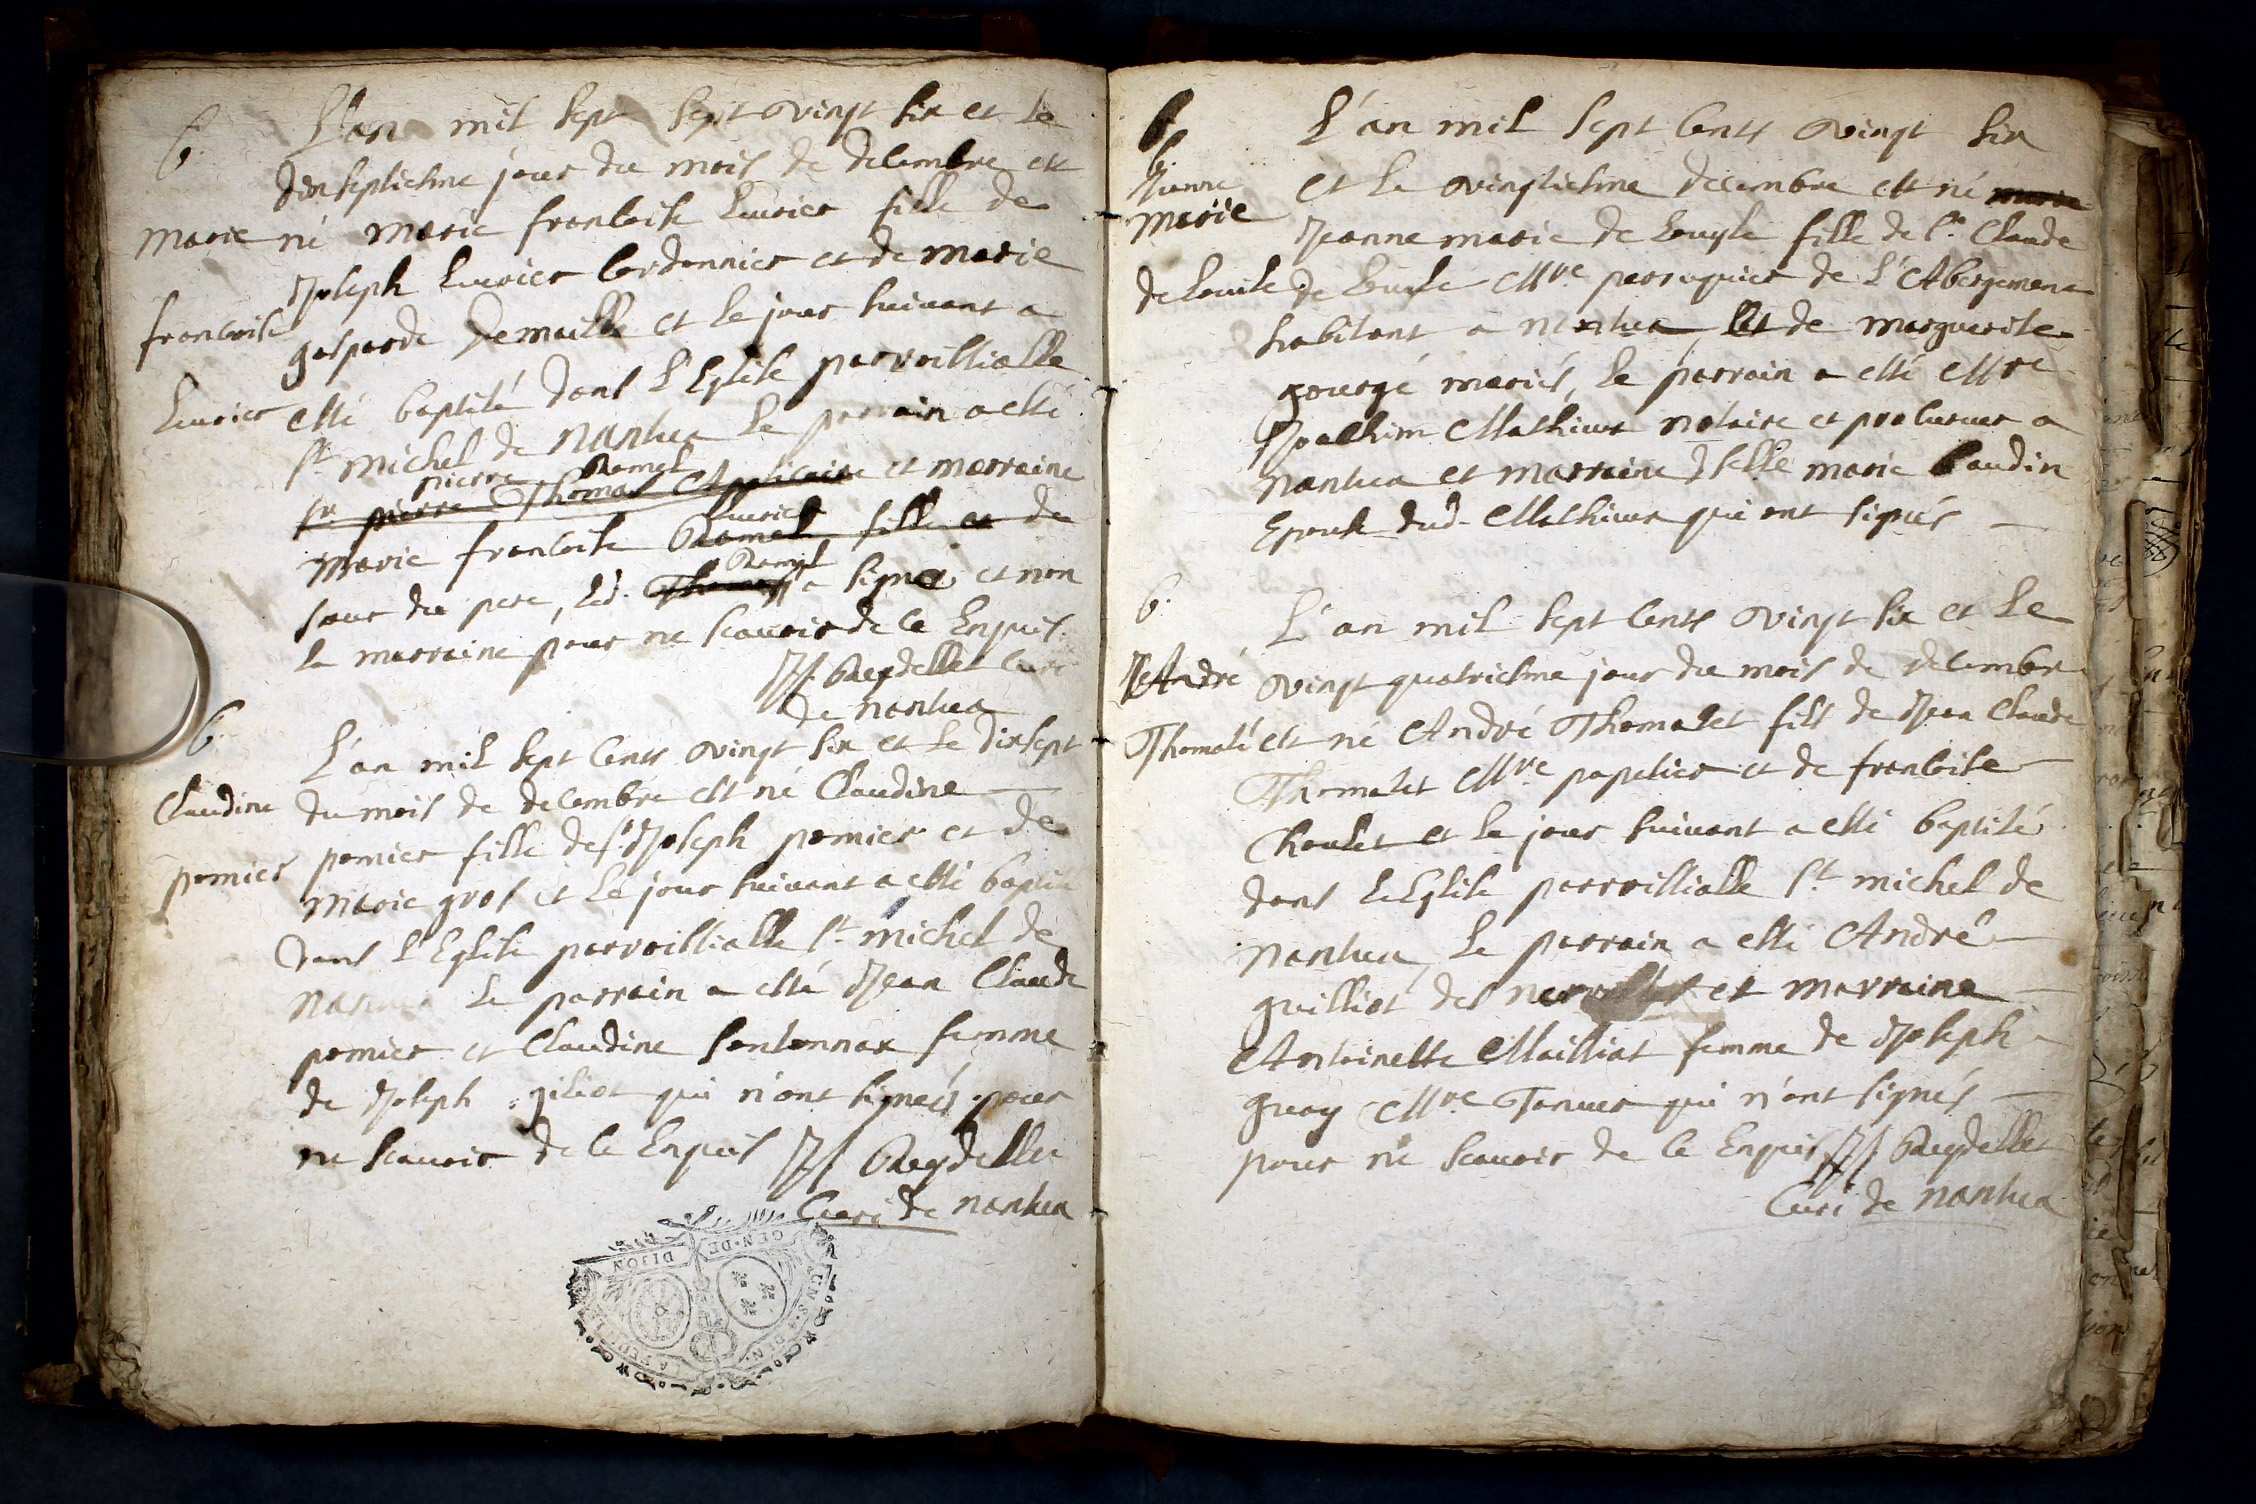 b.
L'an mil sept sept vingt six et le
dixseptiesme jour du mois de decembre est
marie né marie francoise Luvrier fille de
Joseph Luvrier Cordonnier et de marie
francoise gasparde Demaille et le jour suivant a
Luvrier esté baptisé dans l'Eglise parroissialle
st michel de nantua le parrain a esté
pierre Ramel
sr. pierre Thomas Apoticaire et marraine
Luvrier
marie francoise Ramel fille et de
Ramel
soeur du pere, led. Thomas a signé et non
la marraine pour ne scavoir de ce Enquis
JJ Reydellet Curé
de nantua
b.
L'an mil sept cents vingt six et le dixsept
Claudine du mois de decembre est né Claudine
pomier pomier fille de sr Joseph pomier et de
marie gros et le jour suivant a esté baptisé
dans l'Eglise parroissialle st michel de
nantua le parrain a esté Jean Claude
pomier et Claudine Sentonnax femme
de Joseph giliot qui n'ont signés pour
ne scavoir de ce Enquis JJ Reydellet
Curé de nantua
GEN·DE DIJON
b.
b.
L'an mil sept cents vingt six
Jeanne marie et le vingtiesme decembre est né marie
Jeanne marie de Louyse fille de sr. Claude
de Louise de Louyse Mre perruquier de l'Abergement
habitant a nantua, et de marguerite
gourgé mariés, le parrain a esté Mre
Joachim Mathieux notaire et procureur a
nantua et marraine dselle marie baudin
Epouse dud. Mathieux qui ont signés
b.
L'an mil sept cents vingt six et le
André vingt quatriesme jour du mois de decembre
Thomasé est né André Thomaset fils de Jean Claude
Thomaset Mre papetier et de francoise
Choulet et le jour suivant a esté baptisé
dans l'Eglise parroissialle st. michel de
nantua, le parrain a esté André
guilliot des et marraine
Antoinette Mailliat femme de Joseph
guay Mre Tanneur qui n'ont signés
pour ne scavoir de ce Enquis JJ Reydellet
Curé de nantua